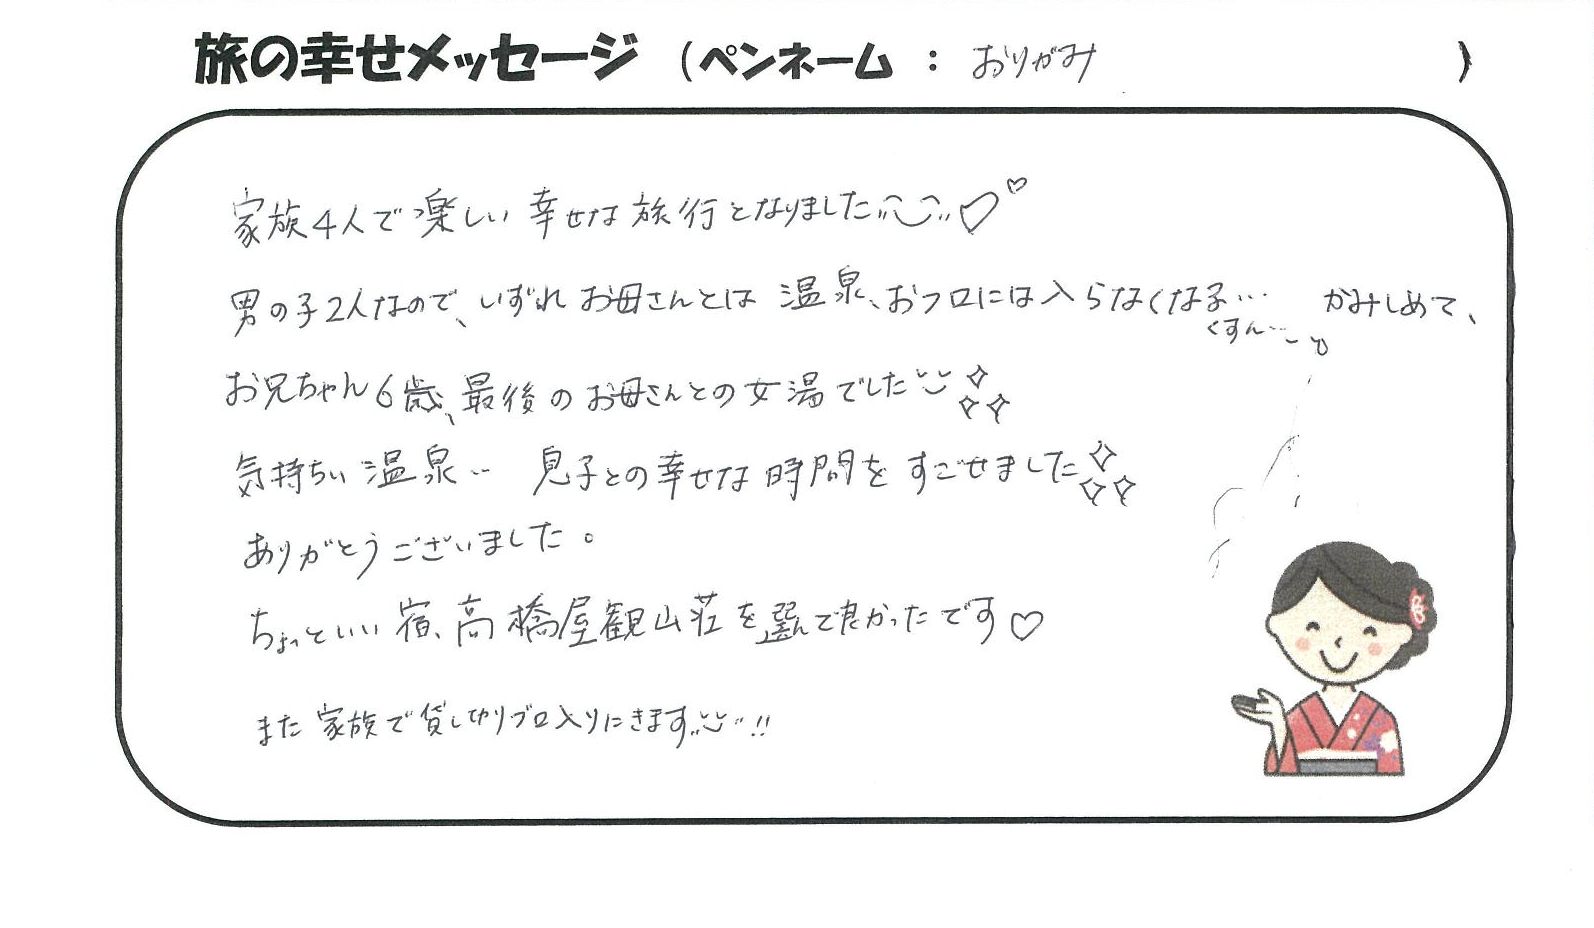 旅の幸せメッセージ （ペンネーム ： おりがみ ）
家族4人で楽しい幸せな旅行となりました♡♡
男の子2人なので、いずれお母さんとは温泉、おフロには入らなくなる… かみしめて、
くすん…
お兄ちゃん6歳、最後のお母さんとの女湯でした
気持ちい温泉… 息子との幸せな時間をすごせました
ありがとうございました。
ちょっといい宿、高橋屋観山荘を選んで良かったです♡
また家族で貸し切りブロ入りにきます!!